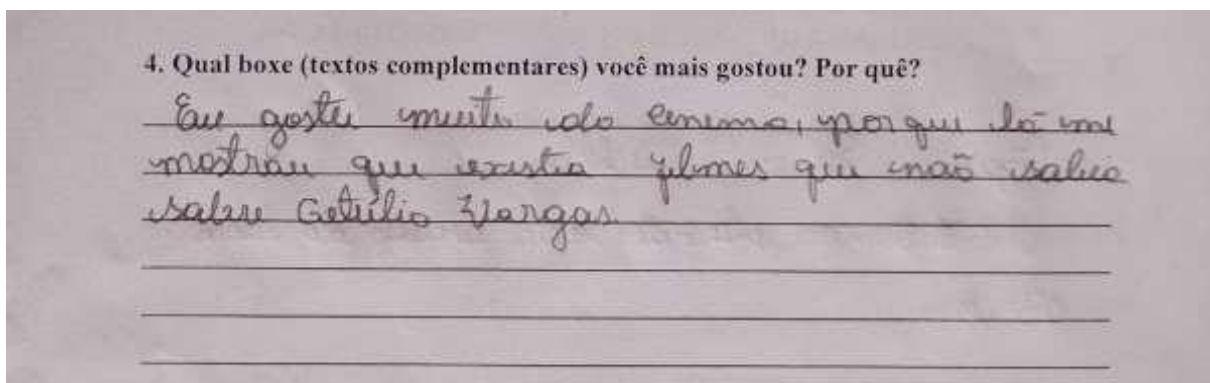 4. Qual boxe (textos complementares) você mais gostou? Por quê?
Eu gostei muito do cinema, por que lá me
mostrou que existia filmes que não sabia
sobre Getúlio Vargas.